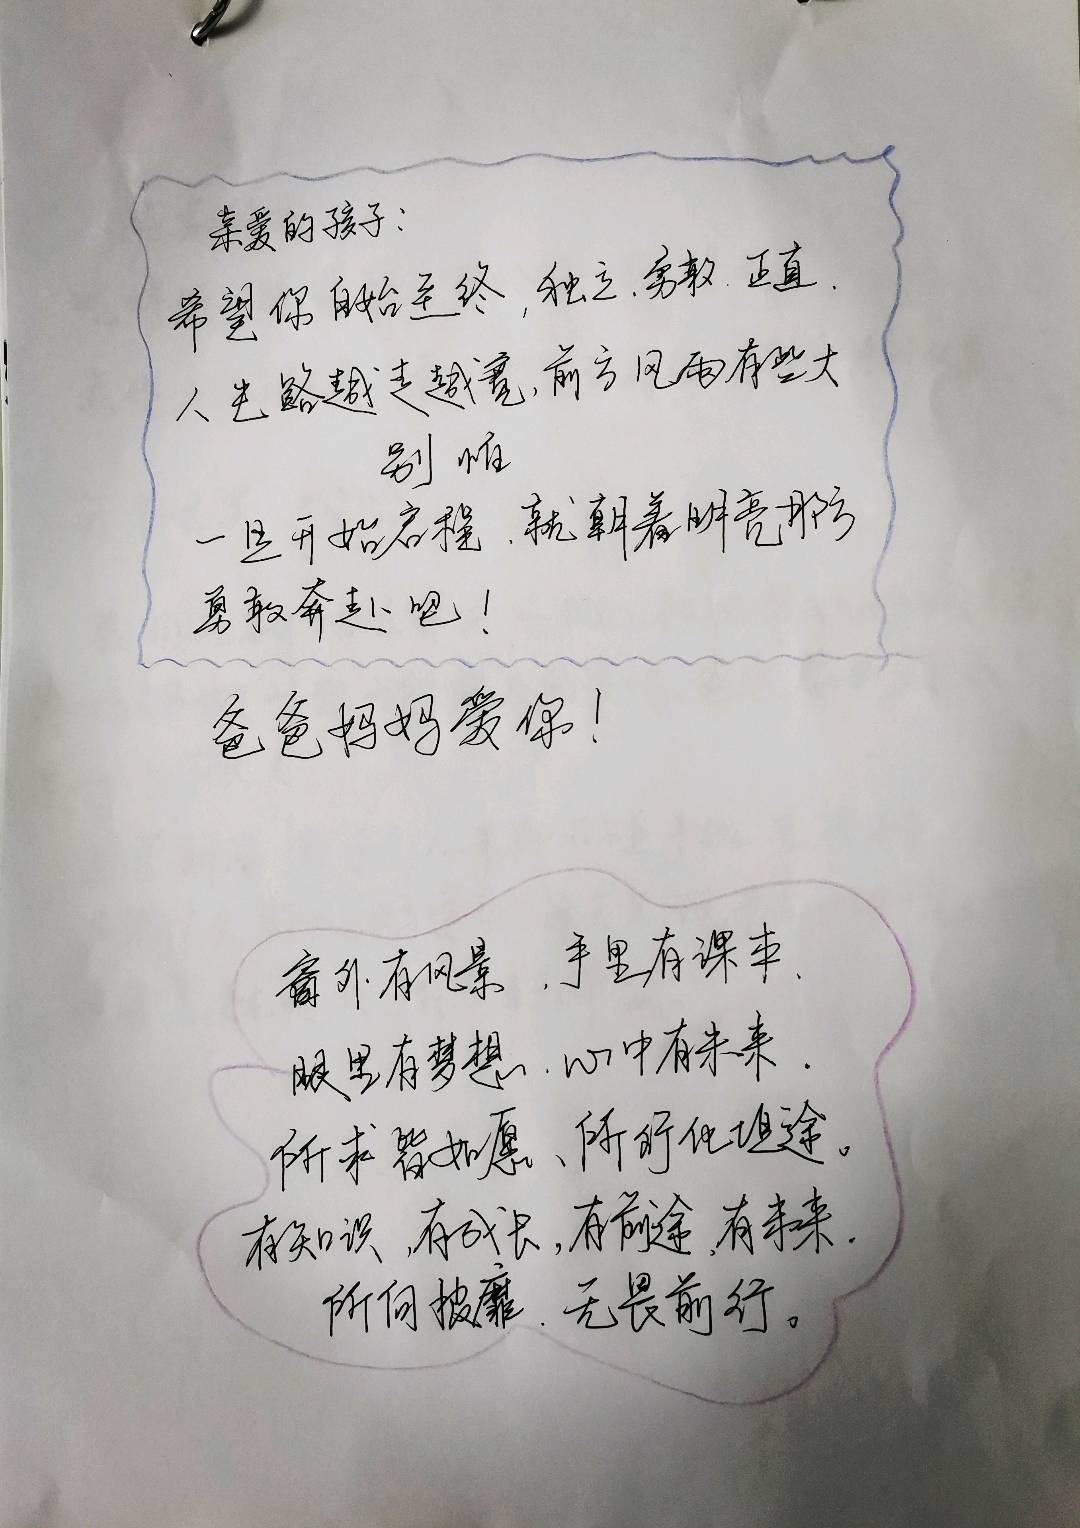 亲爱的孩子:
希望你自始至终,独立、勇敢、正直.
人生路越走越宽,前方风雨有些大
别怕
一旦开始启程,就朝着明亮那方
勇敢奔赴吧!
爸爸妈妈爱你!
窗外有风景,手里有课本,
眼里有梦想,心中有未来.
所求皆如愿、所行化坦途。
有知识,有成长,有前途,有未来.
所向披靡、无畏前行。